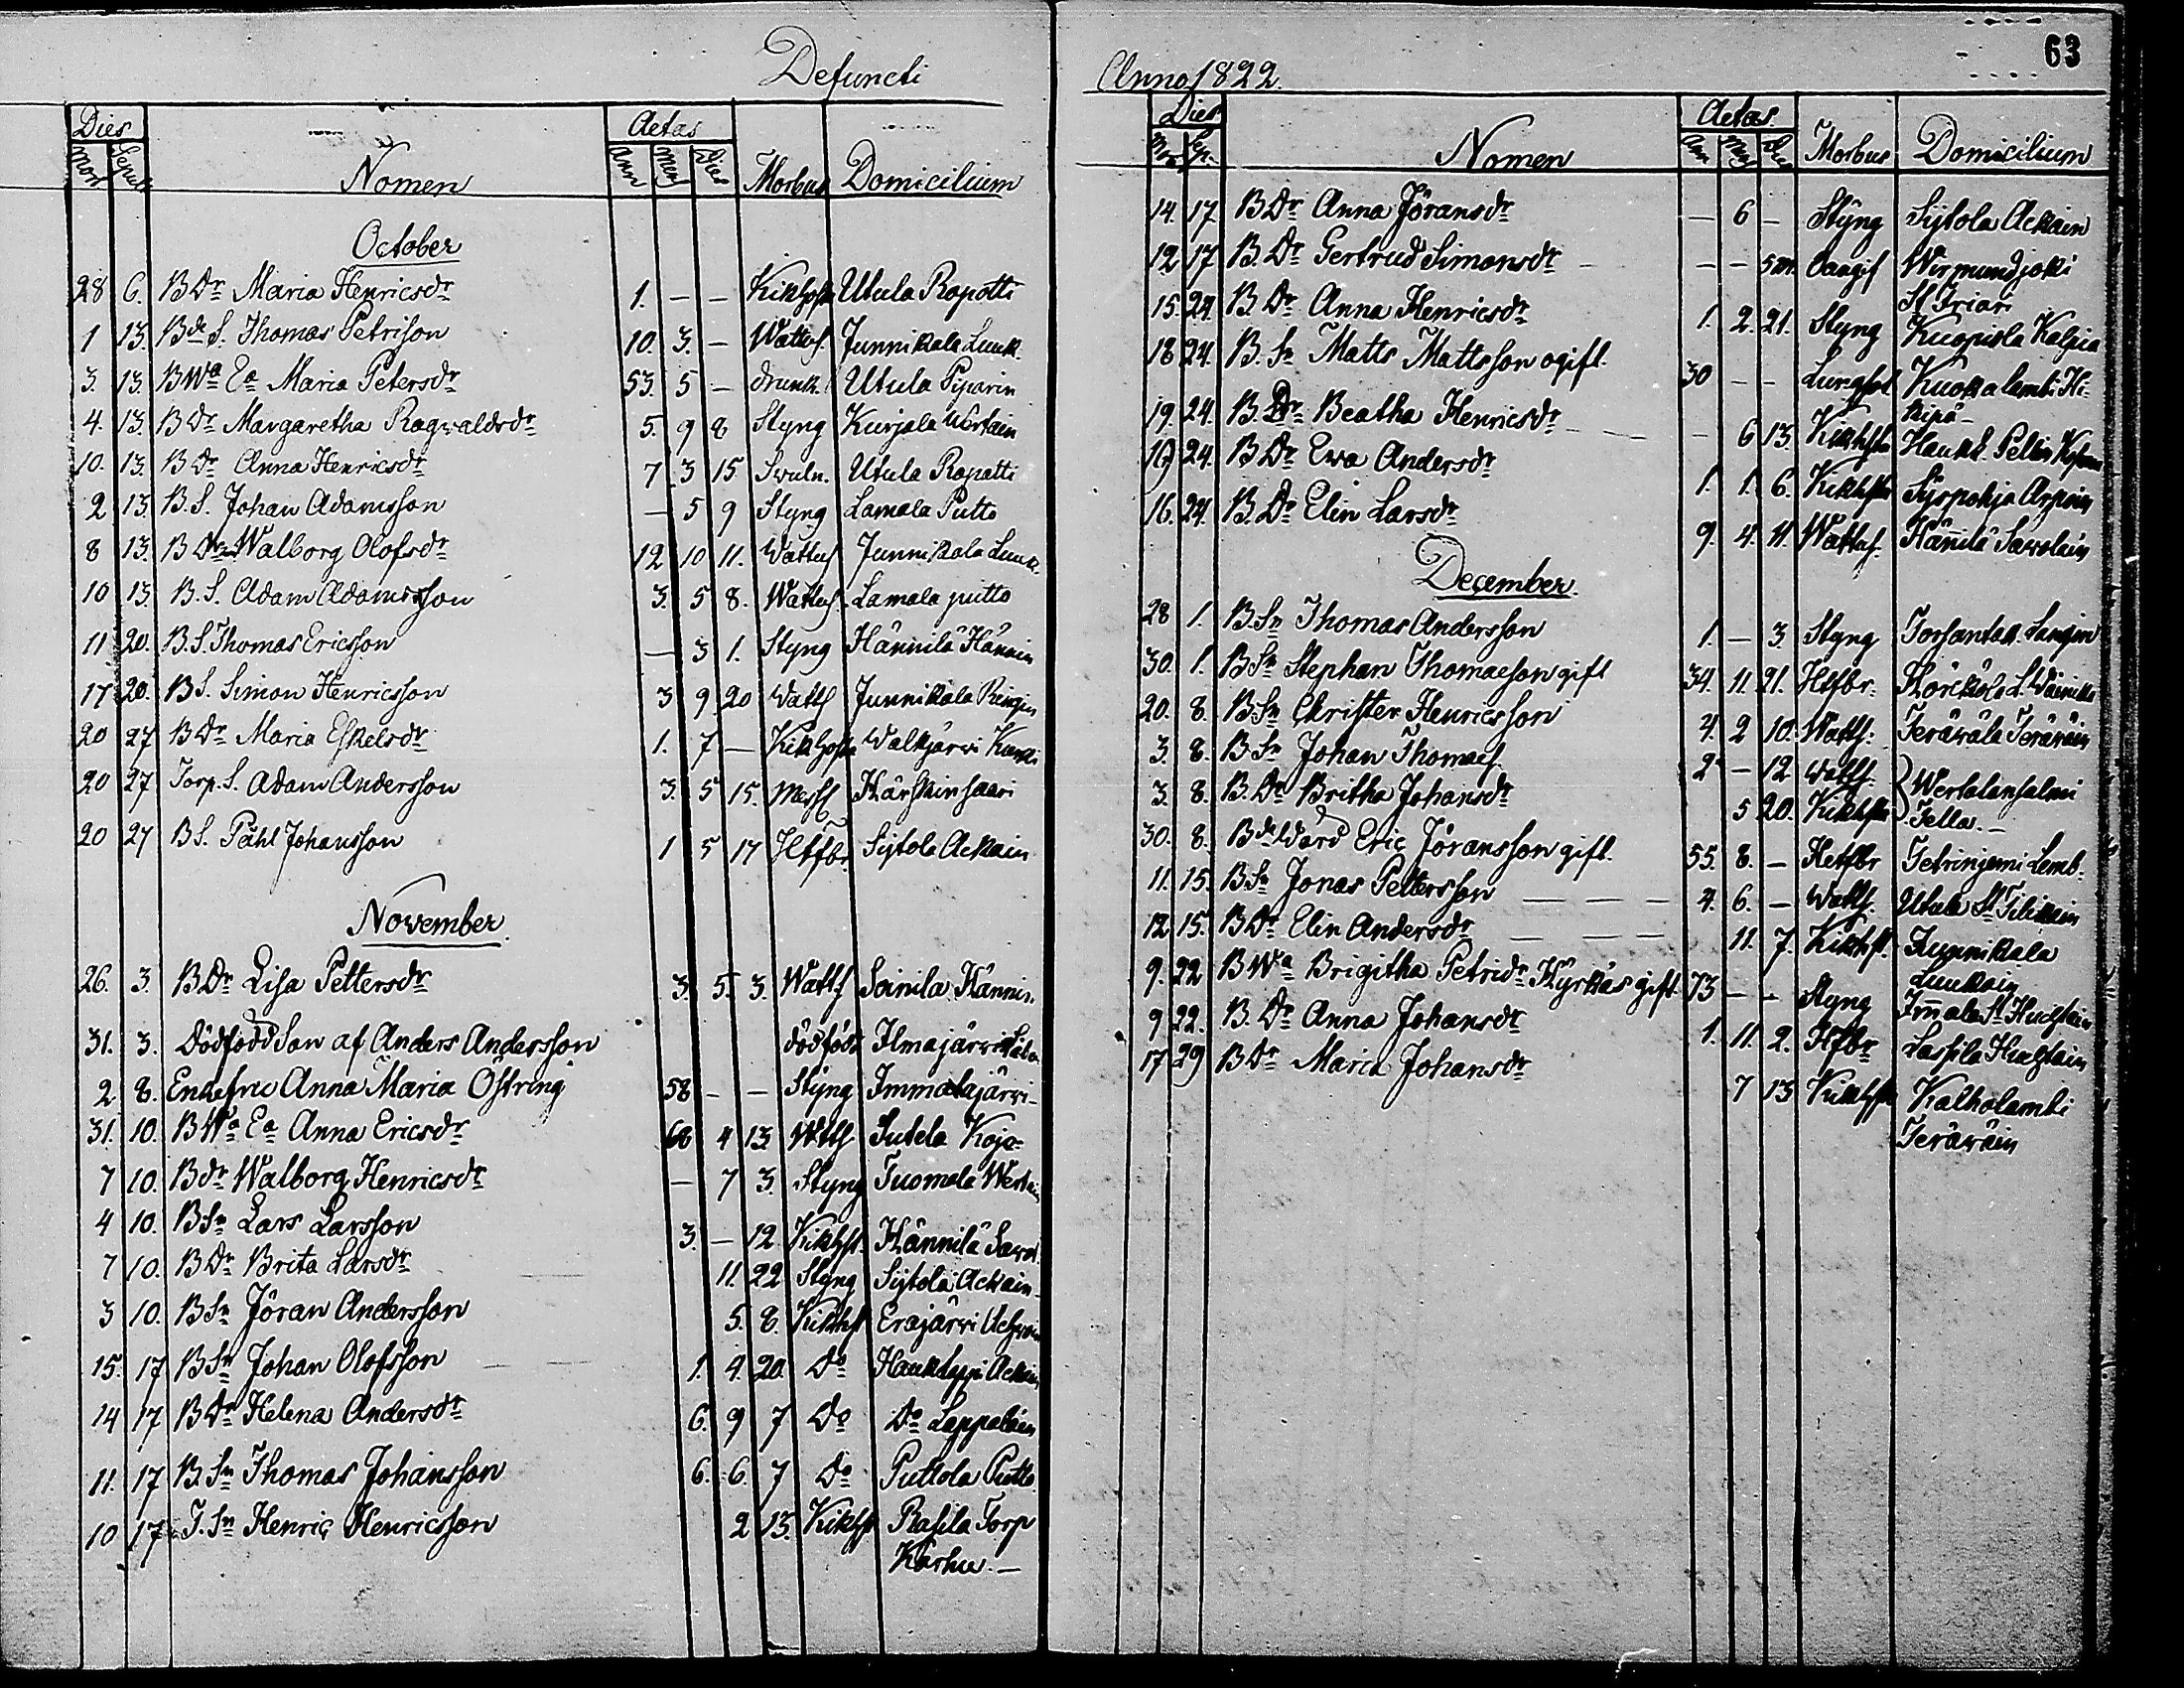 Defuncti
Dies Nomen Aetas Morbus Domicilium
Mort Sepult Ann Men Dies
October
28 6. B Dr Maria Henricsdr 1. – – Kikhosta Utula Rapatti
1 13. Bde S. Thomas Petrison 10. 3. – Wattus. Junnikala Luuk.
3. 13. B Wa Ea Maria Petersdr 53. 5 – drunk. Utula Piparin
4. 13. B Dr Margaretha Ragwaldsdr 5. 9 8 Styng Kurjala
10. 13. B Dr Anna Henricsdr 7 3 15 Svuln. Utula Rapatti
2 13. B. S. Johan Adamsson – 5 9 Styng Lamala Putto
8 13. B Dr Walborg Olofsdr 12 10 11. Wattus Junnikala Luuk.
10 13. B. S. Adam Adamsson 3. 5 8. Wattus. Lamala putto
11 20. B. S. Thomas Ericsson – 3 1. Styng Hännilä Hännin
17 20. B S. Simon Henricsson 3 9 20 Watts Junnikala
20 27 B Dr Maria Eskelsdr 1. 7 – Kikhosta Walkjärwi
20 27 Torp. S. Adam Andersson 3. 5 15. Messl Härskinsaari
20 27 B S. Påhl Johansson 1 5 17 Hetfbr. Sijtola Ackain
November.
26. 3. B Dr Lisa Pettersdr 3. 5. 3. Watts Soinila Hännin.
31. 3. Dödfödd Son af Anders Andersson dödfödd Ilmajärwi
2 8. Enkefru Anna Maria Östring 58 – – Styng Immalajärwi –
31. 10. B Wa Ea Anna Ericsdr 68 4 13 Wtts Sutela Kojo-
7 10. B dr Walborg Henricsdr – 7 3. Styng Tuomala
4 10. B Sn Lars Larsson 3. – 12. Kikhst. Hännilä Sawol.
7 10. B Dr Brita Larsdr 11. 22 Styng Sijtola Ackain –
3 10. B Sn Jöran Andersson 5. 8. Kikhst Eräjärwi
15. 17 B Sn Johan Olofsson 1. 4. 20. Do Haukkappi Ackain
14 17 B Dr Helena Andersdr 6. 9 7 Do Do Lappalain
11. 17 B. Sn Thomas Johansson 6. 6. 7 Do Puttola Putto
10 17 T. Sn Henric Henricsson 2 13. Kikhst Rasila Torp
Karhu. –
63
Anno 1822.
Dies Nomen Aetas Morbus Domicilium
Mor Sep. Ann Men Die
14. 17 B Dr Anna Jöransdr – 6 – Styng Sijtola Ackain
12 17 B. Dr Gertrud Simonsdr – – – 5 Oangif Wirmundjoki
15. 24. B. Dr Anna Henricsdr 1. 2. 21. Styng Kuopiola
18 24. B. Sn Matts Mattsson ogift. 30 – – Lungsot Kuokalambi Hi-
19. 24. B. Dr Beatha Henricsdr – 6 13. Kikhst Haukk. Pellin
19 24. B Dr Ewa Andersdr 1. 1. 6. Kikhst Syrpohja Arpiain
16. 24. B. Dr Elin Larsdr 9. 4. 11. Wattus. Hännilä Sawolain
December.
28 1. B. Sn Thomas Andersson 1. – 3. Styng Torsantak.
30. 1. B Sn Stephan Thomaeson gift 34. 11. 21. Hetfbr.
20. 8. B. Sn Christer Henricsson 4. 2 10. Watts. Teräwälä Teräwäin
3. 8. B Sn Johan Thomaes. 2 – 12. watts. Wertalansalmi
3. 8. B. Dr Britha Johansdr 5 20. Kikhst Tella. –
30. 8. Bde Ward Eric Jöransson gift. 55. 8. – Hetfbr Tetrinjemi Lemb.
11. 15. B Sn Jonas Pettersson – – – 4. 6. – Watts. Utula
12 15. B Dr Elin Andersdr – – – 11. 7. Kikhst. Junnikala
Luukain
9. 22 B Wa Brigitha Petridr Hyrkäs gift 73 – – Styng Immala
9 22. B. Dr Anna Johansdr 1. 11. 2. Htfbr Lassila Huastain
17 29 B Dr Maria Johansdr 7 13 Kikhst Kalholambi
Teräwäin